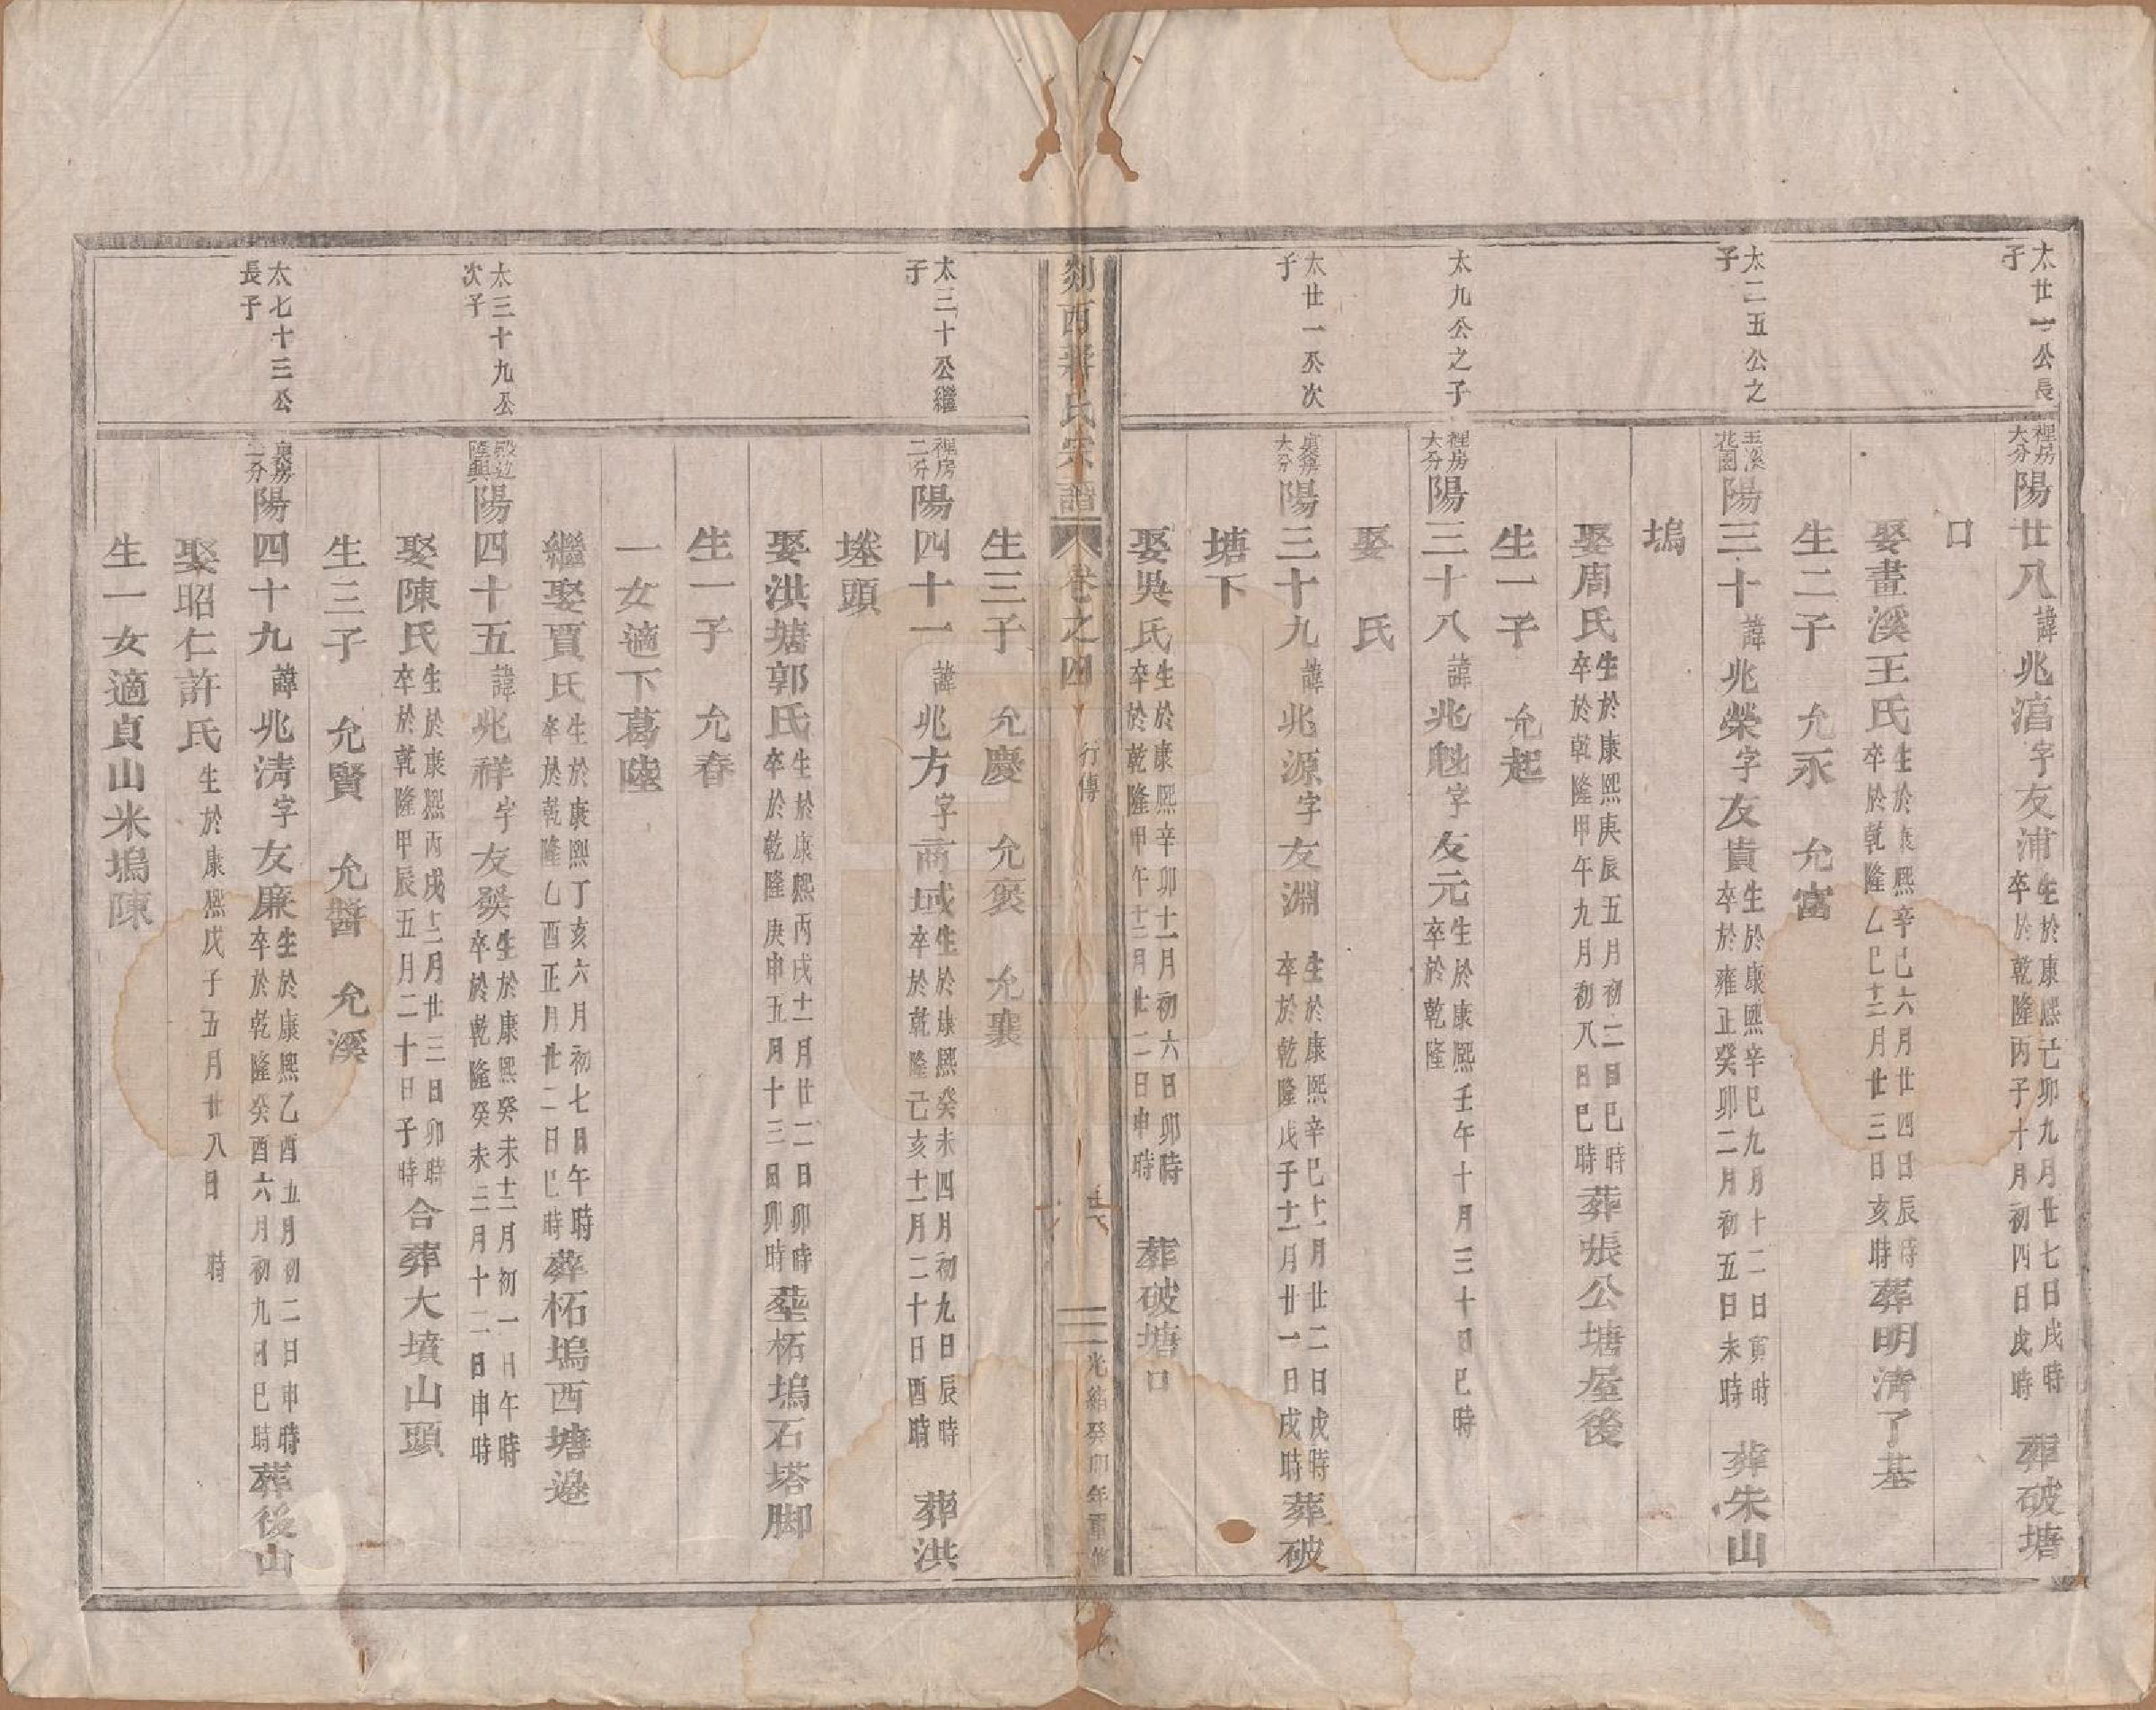 太廿一公長子
裡房大分陽廿八諱兆滀字友浦生於康熙己卯九月廿七日戌時卒於乾隆丙子十月初四日戌時葬破塘
口
娶畫溪王氏生於康熙辛巳六月廿四日辰時卒於乾隆乙巳十二月廿三日亥時葬明清了基
生二子 允永 允富
太二五公之子
玉溪花園陽三十諱兆榮字友貴生於康熙辛巳九月十二日寅時卒於雍正癸卯二月初五日未時葬朱山
塢
娶周氏生於康熙庚辰五月初二日巳時卒於乾隆甲午九月初八日巳時葬張公塘屋後
生一子 允起
太九公之子
裡房大分陽三十八諱兆魁字友元生於康熙壬午十月三十日巳時卒於乾隆
娶 氏
太廿一公次子
裏房大分陽三十九諱兆源字友淵生於康熙辛巳十一月廿二日戌時卒於乾隆戊子十一月廿一日戌時葬破
塘下
娶吳氏生於康熙辛卯十一月初六日卯時卒於乾隆甲午十二月廿二日申時葬破塘口
剡西蔣氏宗譜 卷之四 行傳 光緒癸卯年重修
生三子 允慶 允褒 允襄
太三十公繼子
裡房二分陽四十一諱兆方字商域生於康熙癸未四月初九日辰時卒於乾隆己亥十一月二十日酉時葬洪
塰頭
娶洪塘郭氏生於康熙丙戌十一月廿二日卯時卒於乾隆庚申五月十三日卯時塟柘塢石塔脚
生一子 允春
一女適下葛陸
繼娶賈氏生於康熙丁亥六月初七日午時卒於乾隆乙酉正月廿二日巳時葬柘塢西塘邉
太三十九公次子
殿边隆興陽四十五諱兆祥字友發生於康熙癸未十二月初一日午時卒於乾隆癸未三月十二日申時
娶陳氏生於康熙丙戌十二月廿三日卯時卒於乾隆甲辰五月二十日子時合葬大墳山頭
生三子 允賢 允醬 允溪
太七十三公長子
裏房二分陽四十九諱兆淸字友廉生於康熙乙酉五月初二日申時卒於乾隆癸酉六月初九日巳時葬後山
娶昭仁許氏生於康熙戊子五月廿八日 時
生一女適貞山米塢陳